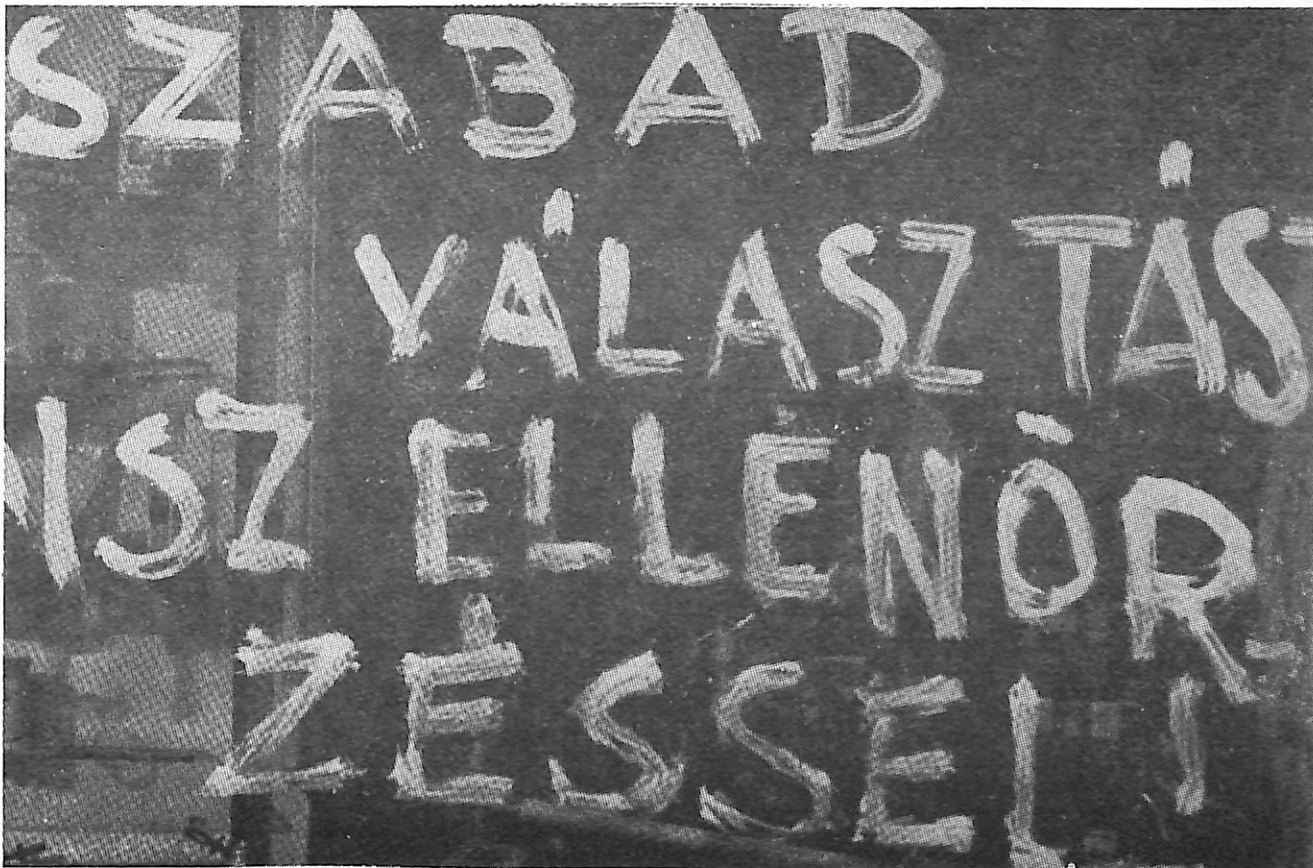 SZABAD
VÁLASZTÁST
NSZ ELLENŐR-
ZÉSSEL!